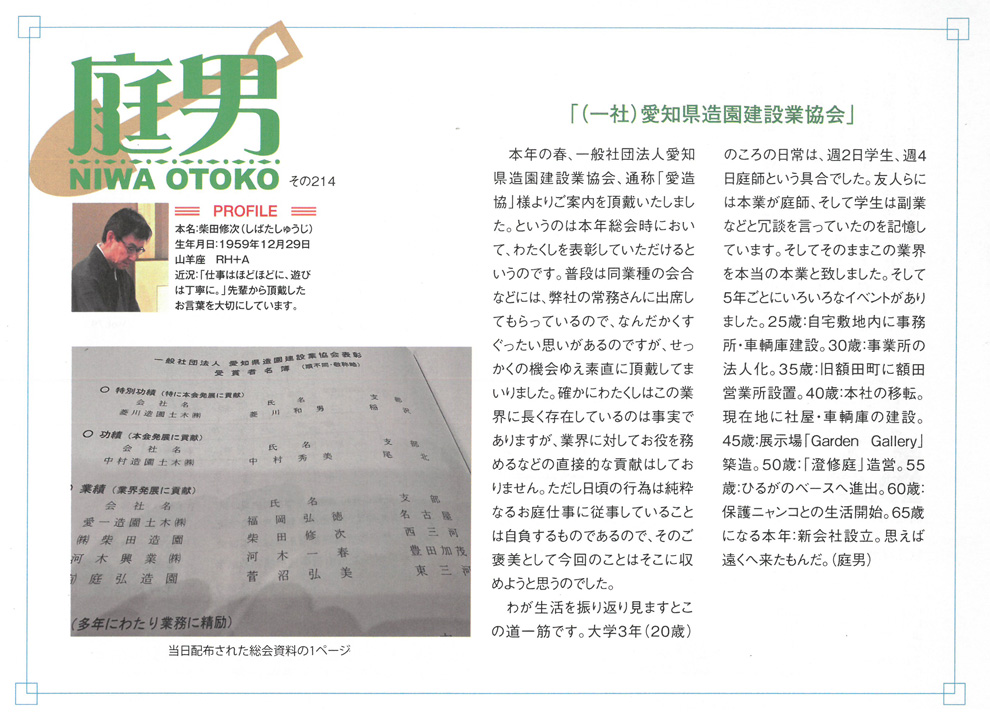 庭男
NIWA OTOKO
その214
PROFILE
本名:柴田修次(しばたしゅうじ)
生年月日:1959年12月29日
山羊座　RH+A
近況:「仕事はほどほどに、遊び
は丁寧に。」先輩から頂戴した
お言葉を大切にしています。
一般社団法人　愛知県造園建設業協会表彰
受賞者名簿　(順不同・敬称略)
○ 特別功績 (特に本会発展に貢献)
会社名　氏名　支部
菱川造園土木㈱　菱川和男　稲沢
○ 功績 (本会発展に貢献)
会社名　氏名　支部
中村造園土木㈱　中村秀美　尾北
業績 (業界発展に貢献)
会社名　氏名　支部
愛一造園土木㈱　福岡弘徳　名古屋
㈱柴田造園　柴田修次　西三河
河木興業㈱　河木一春　豊田加茂
庭弘造園　菅沼弘美　東三河
(多年にわたり業務に精励)
当日配布された総会資料の1ページ
「(一社)愛知県造園建設業協会」
本年の春、一般社団法人愛知
県造園建設業協会、通称「愛造
協」様よりご案内を頂戴いたしまし
た。というのは本年総会時におい
て、わたくしを表彰していただけると
いうのです。普段は同業種の会合
などには、弊社の常務さんに出席し
てもらっているので、なんだかくす
ぐったい思いがあるのですが、せっ
かくの機会ゆえ素直に頂戴してま
いりました。確かにわたくしはこの業
界に長く存在しているのは事実で
ありますが、業界に対してお役を務
めるなどの直接的な貢献はしてお
りません。ただし日頃の行為は純粋
なるお庭仕事に従事していること
は自負するものであるので、そのご
褒美として今回のことはそこに収
めようと思うのでした。
わが生活を振り返り見ますとこ
の道一筋です。大学3年(20歳)
のころの日常は、週2日学生、週4
日庭師という具合でした。友人らに
は本業が庭師、そして学生は副業
などと冗談を言っていたのを記憶し
ています。そしてそのままこの業界
を本当の本業と致しました。そして
5年ごとにいろいろなイベントがあり
ました。25歳:自宅敷地内に事務
所・車輌庫建設。30歳:事業所の
法人化。35歳:旧額田町に額田
営業所設置。40歳:本社の移転。
現在地に社屋・車輌庫の建設。
45歳:展示場「Garden Gallery」
築造。50歳:「澄修庭」造営。55
歳:ひるがのベースへ進出。60歳:
保護ニャンコとの生活開始。65歳
になる本年:新会社設立。思えば
遠くへ来たもんだ。(庭男)